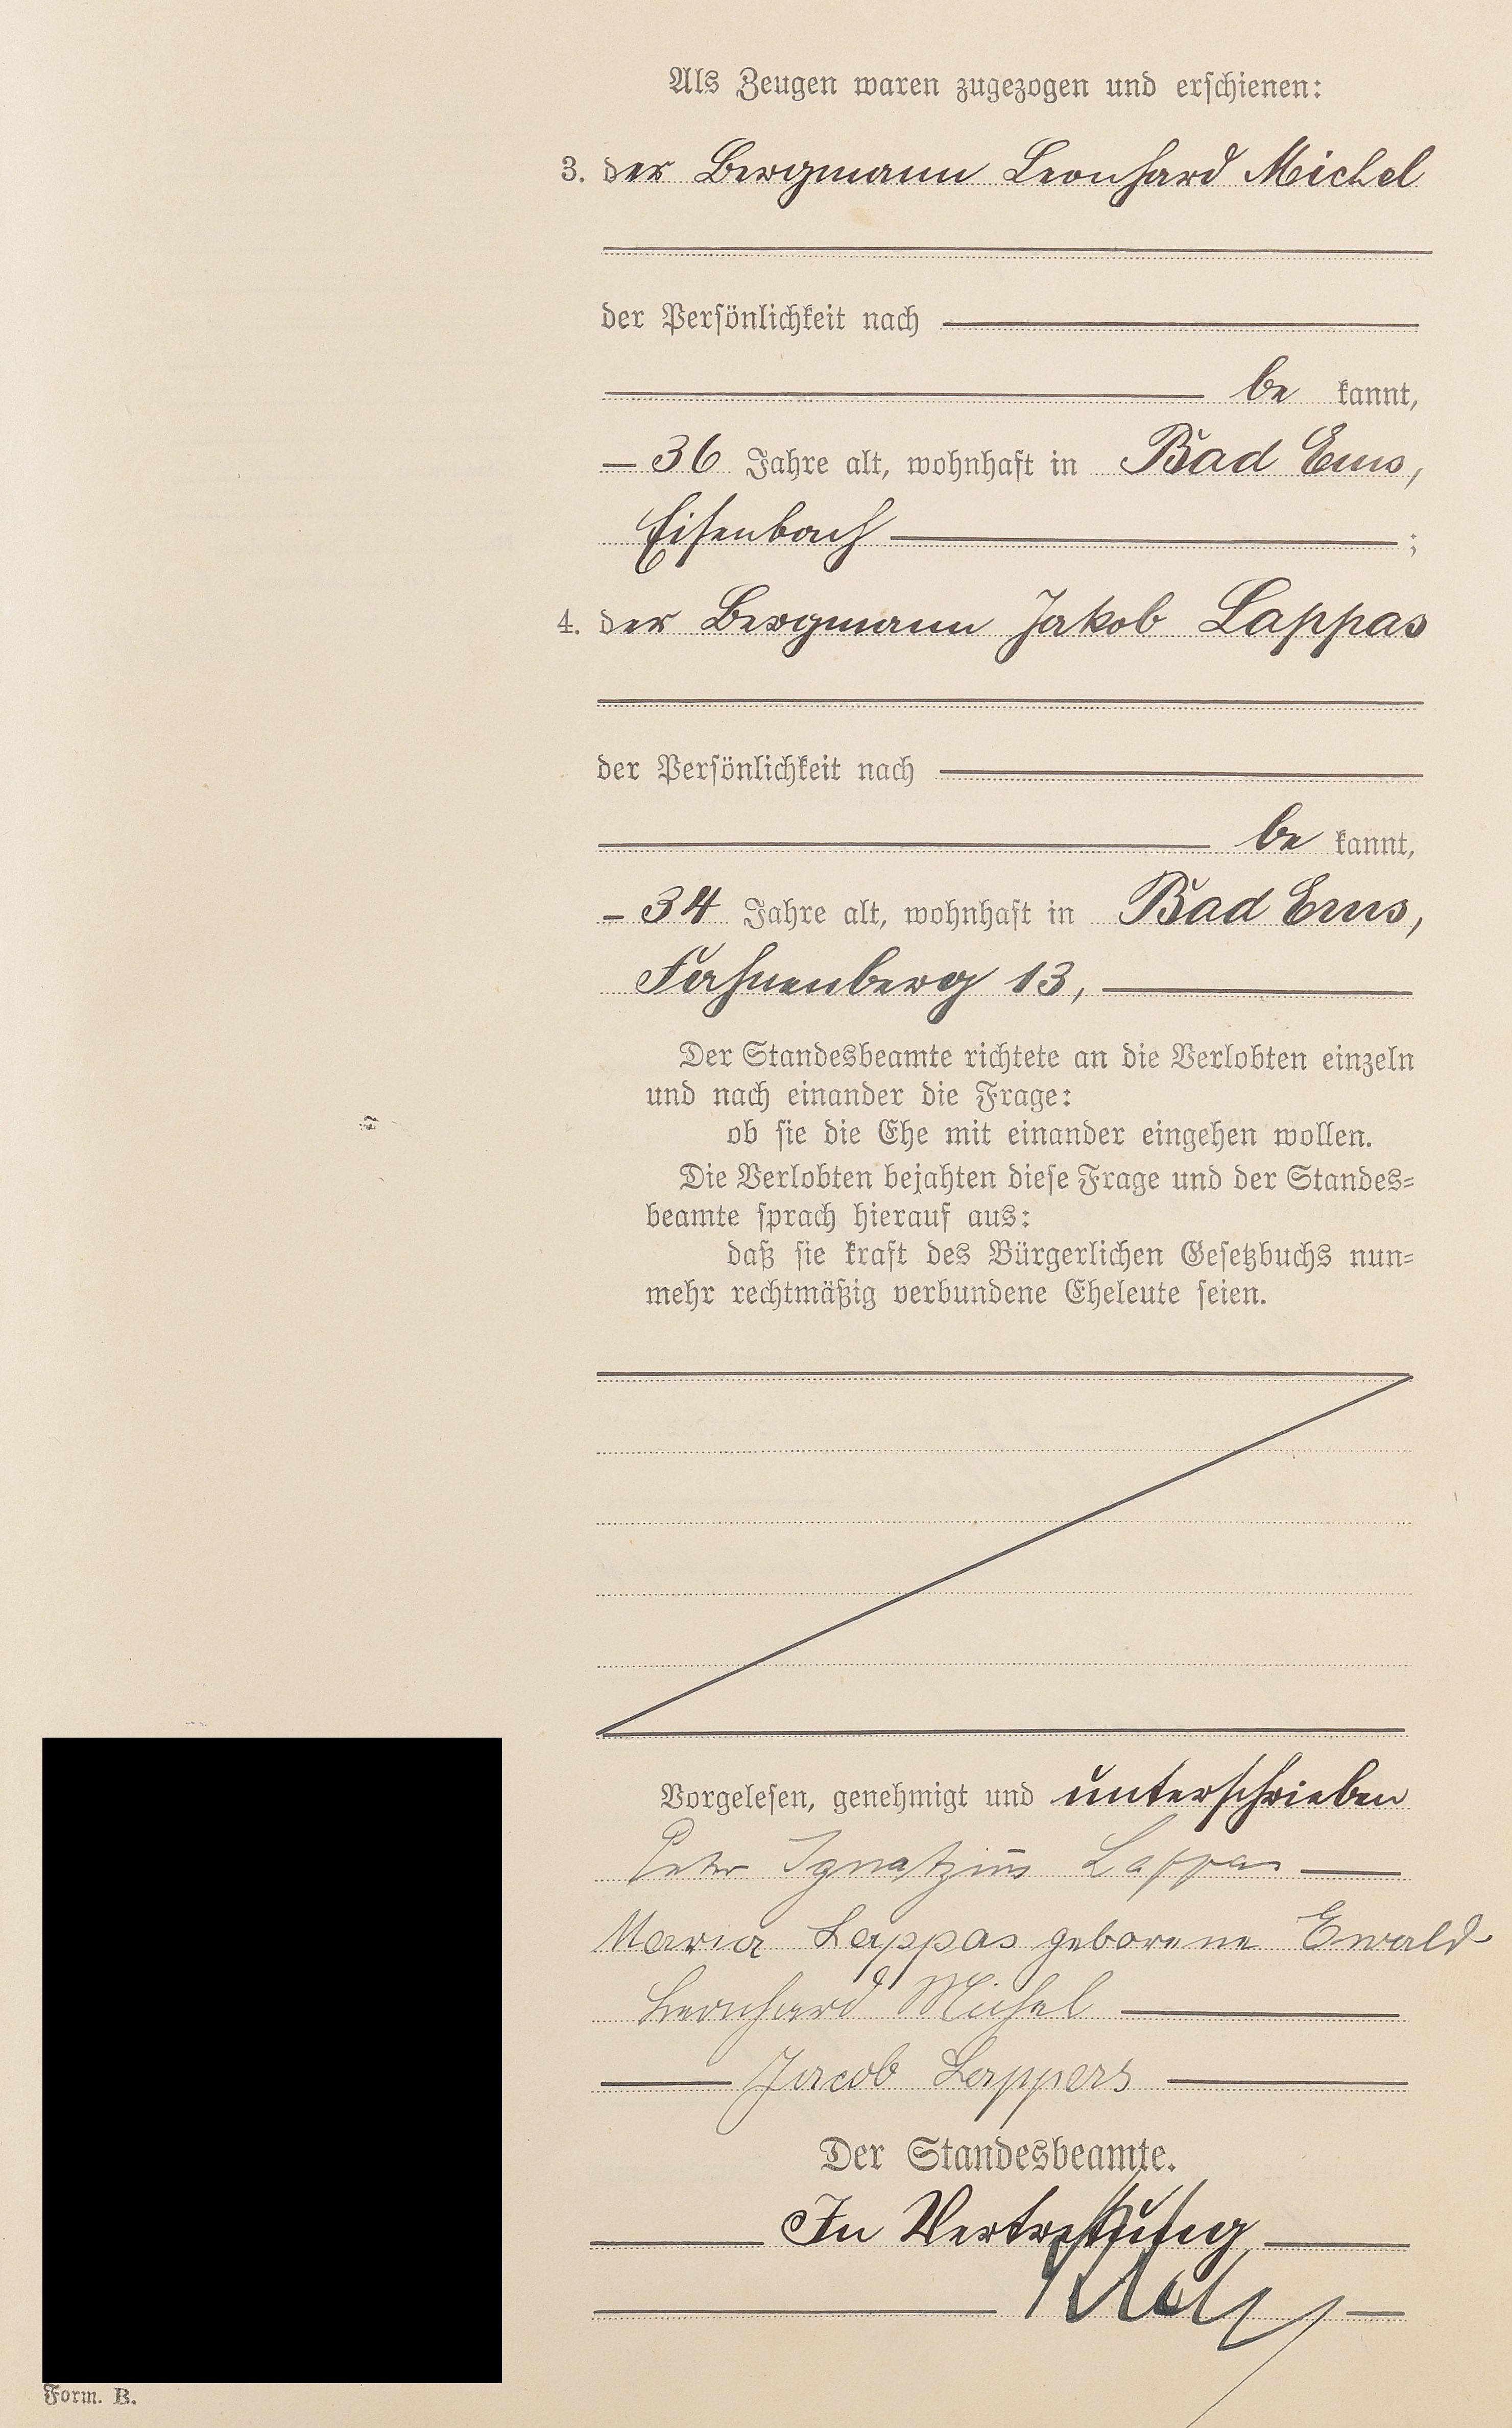 Als Zeugen waren zugezogen und erschienen:
3. der Bergmann Leonhard Michel
der Persönlichkeit nach
be kannt,
36 Jahre alt, wohnhaft in Bad Ems,
Eisenbach ;
4. der Bergmann Jakob Lappas
der Persönlichkeit nach
be kannt,
34 Jahre alt, wohnhaft in Bad Ems,
Fahnenberg 13,
Der Standesbeamte richtete an die Verlobten einzeln
und nach einander die Frage:
ob sie die Ehe mit einander eingehen wollen.
Die Verlobten bejahten diese Frage und der Standes=
beamte sprach hierauf aus:
daß sie kraft des Bürgerlichen Gesetzbuchs nun=
mehr rechtmäßig verbundene Eheleute seien.
Vorgelesen, genehmigt und unterschrieben
Peter Ignatzius Lappas
Maria Lappas geborene Ewald
Leonhard Michel
Jacob Lappers
Der Standesbeamte.
In Vertretung
Form. B.